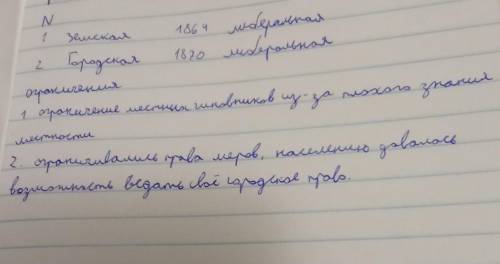 N
1 Земская 1864 либеральная
2 Городская 1870 либеральная
ограничения
1. ограничение местных чиновников из-за плохого знания
местности
2. ограничивались права меров, населению давалось
возможность ведать своё городское право.